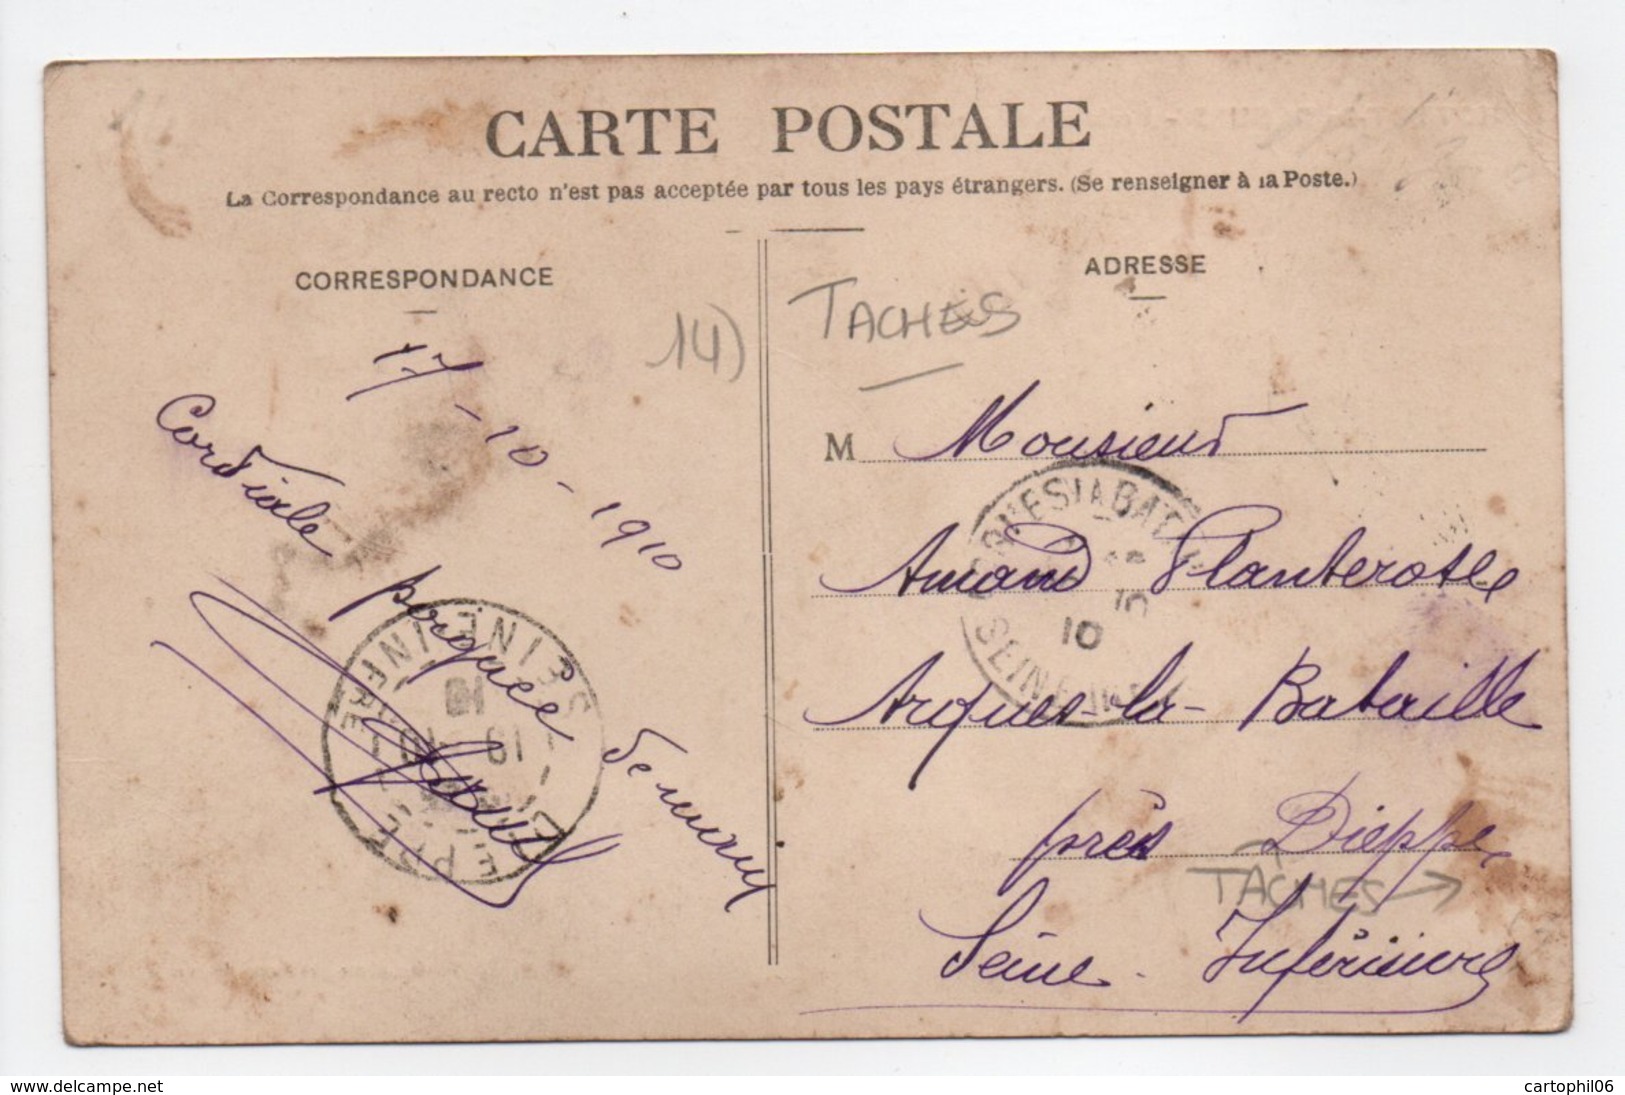 CARTE POSTALE
La Correspondance au recto n'est pas acceptée par tous les pays étrangers. (Se renseigner à la Poste.)
CORRESPONDANCE
14)
17-10-1910
Cordiale
poignée de main
ADRESSE
TACHES
M Monsieur
Amand Planterose
Arques-la-Bataille
près Dieppe
TACHES →
Seine-Inférieure
ARQUES LA BATAILLE
10
10
SEINE INFRE
SEINE INFRE
www.delcampe.net
cartophil06